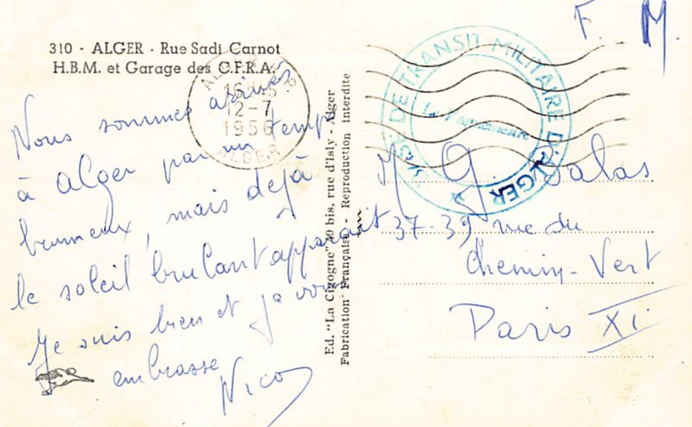 F. M.
310 - ALGER - Rue Sadi Carnot
H.B.M. et Garage des C.F.R.A.
ALGER
12-7
1956
ALGER
DE TRANSIT MILITAIRE D'ALGER
Nous sommes arrivés
à Alger par un temps
brumeux, mais déjà
le soleil brulant apparait
Je suis bien et je vous
embrasse
Nico
Ed. "La Cigogne" 39 bis, rue d'Isly - Alger
Fabrication Française - Reproduction Interdite
M G. Salas
37-39 rue du
Chemin-Vert
Paris XI